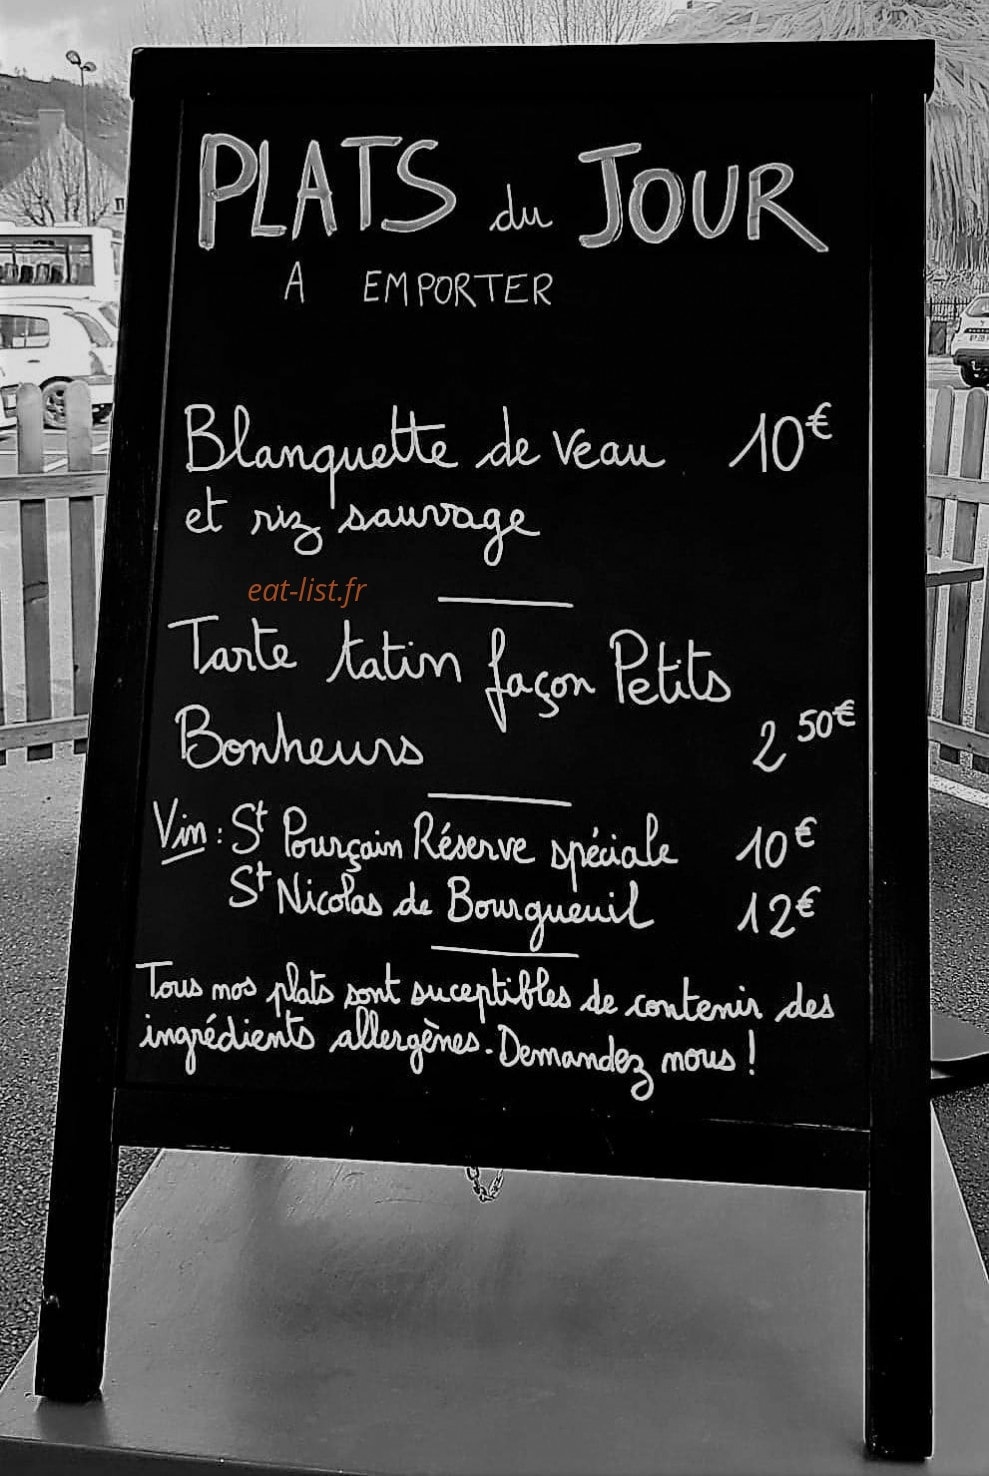 PLATS du JOUR
A EMPORTER
Blanquette de veau 10€
et riz sauvage
eat-list.fr
Tarte tatin façon Petits
Bonheurs 2 50€
Vin : St Pourçain Réserve spéciale 10€
St Nicolas de Bourgueuil 12€
Tous nos plats sont suceptibles de contenir des
ingrédients allergènes. Demandez nous !